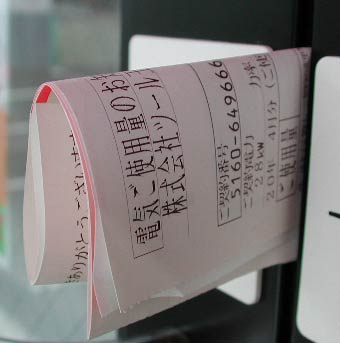 電気ご使用量のお
株式会社ツール
ご契約番号
5160-649666
ご契約電力
28kW
20年 4月分
ご使用量
ありがとうござい